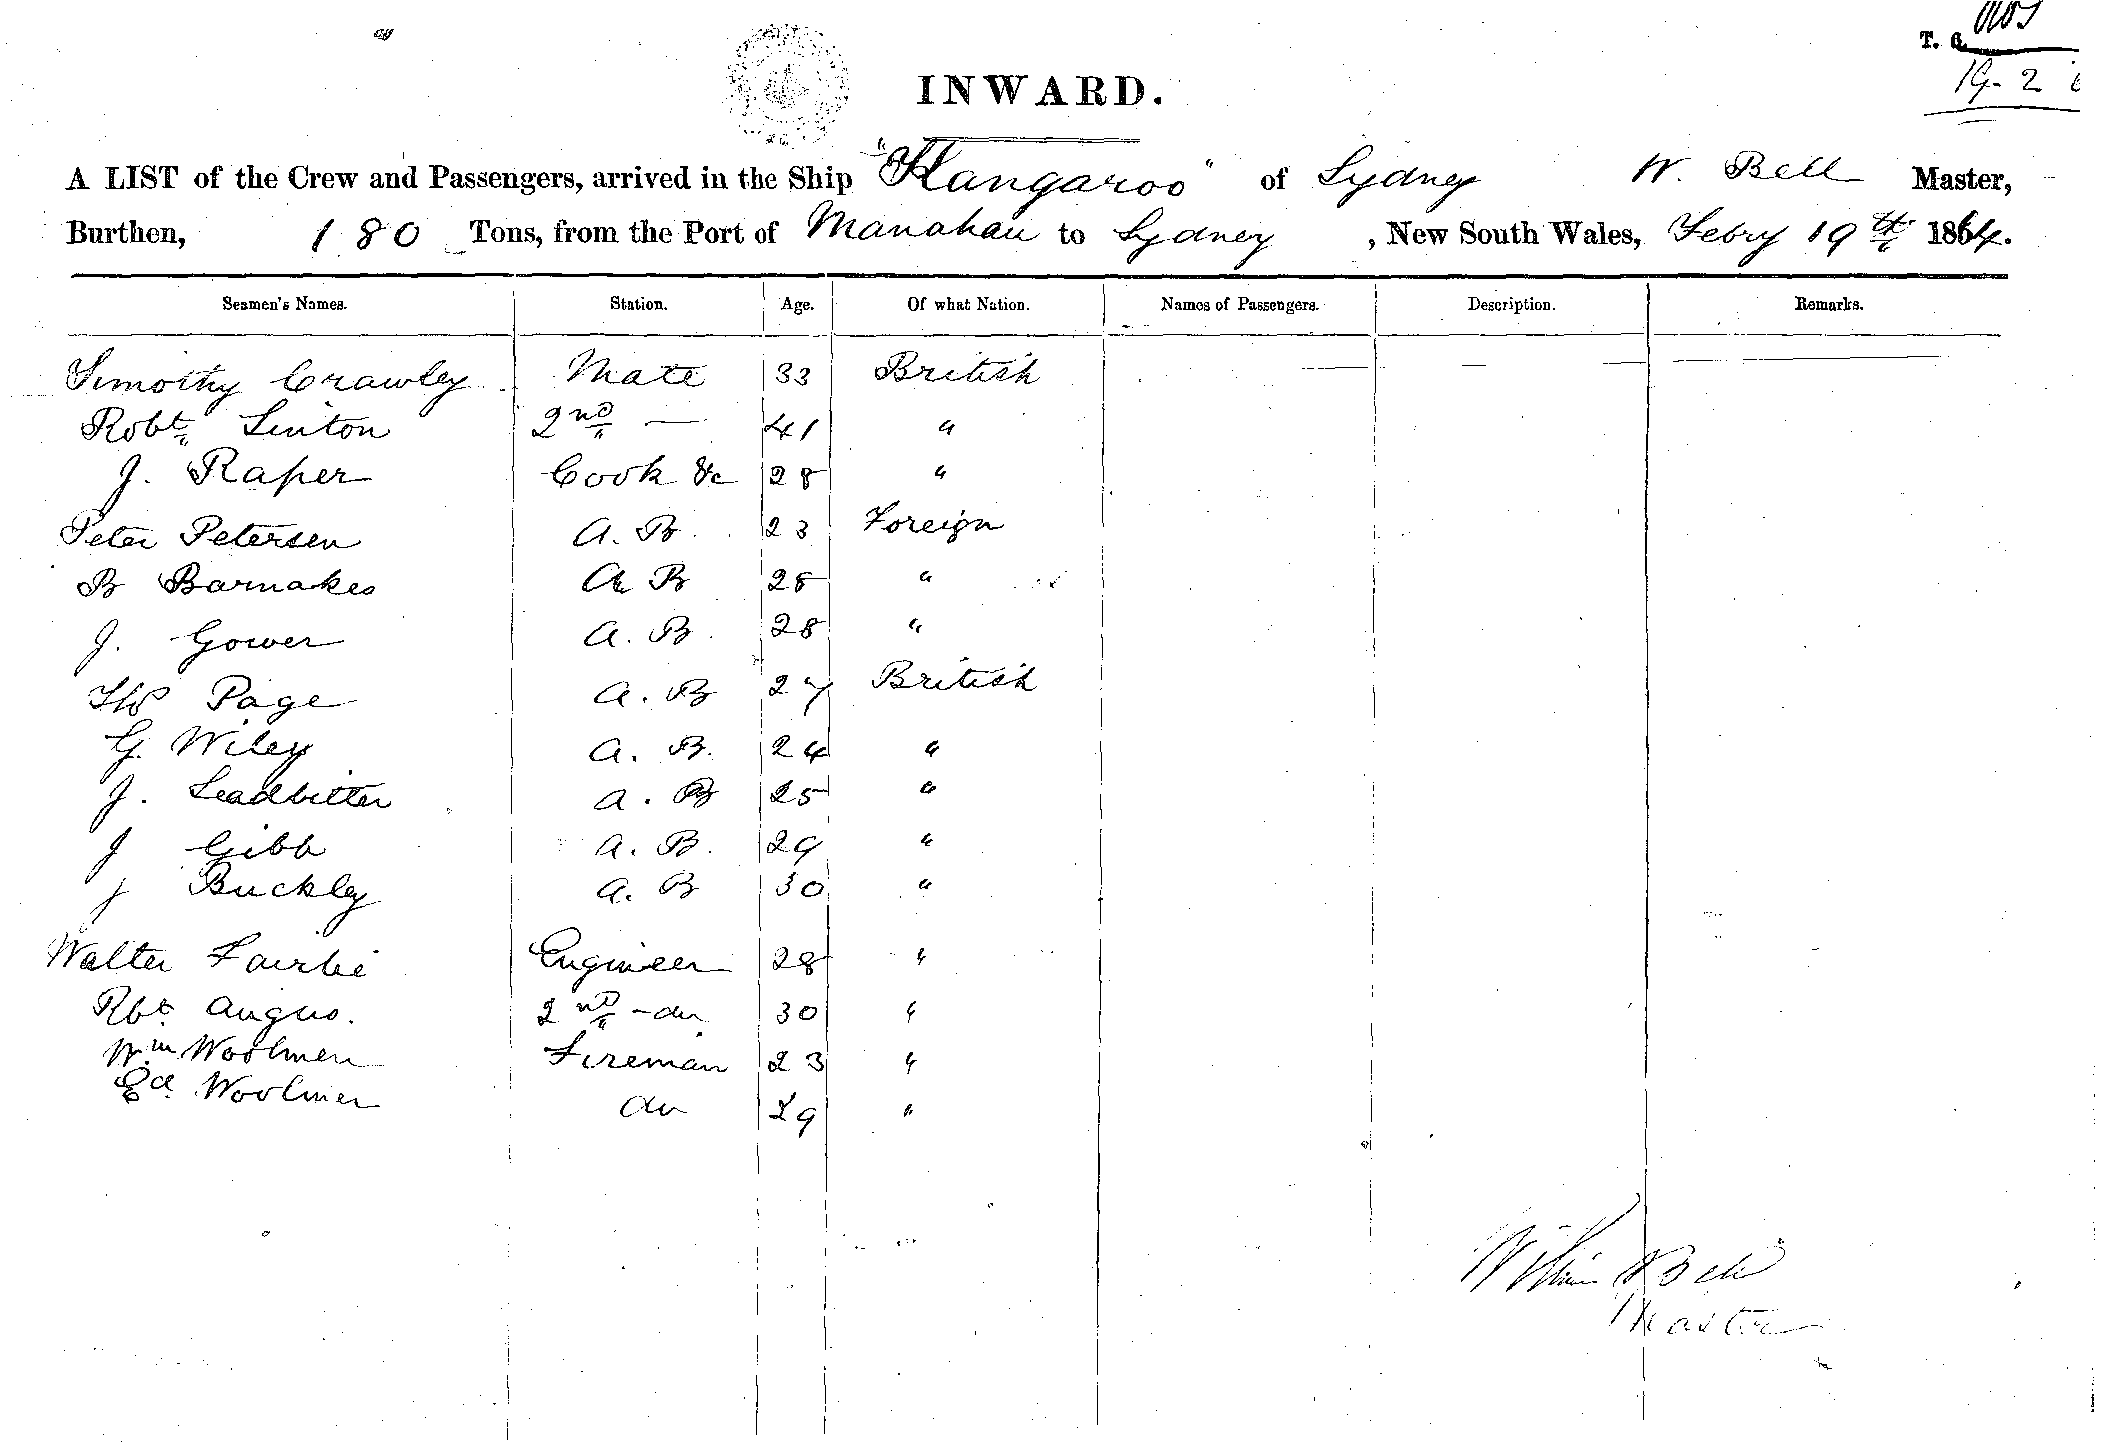 INWARD.
T. 6.
19- 2
A LIST of the Crew and Passengers, arrived in the Ship "Kangaroo" of Sydney W. Bell Master,
Burthen, 180 Tons, from the Port of Manahau to Sydney, New South Wales, Febry 19th 1864.
Seamen's Names. Station. Age. Of what Nation. Names of Passengers. Description. Remarks.
Timothy Crawley Mate 33 British
Robt Linton 2nd — 41 "
J. Raper Cook &c 28 "
Peter Petersen A. B. 23 Foreign
B Barnakes A B 28 "
J. Gower A. B. 28 "
Page A. B 27 British
G. Wiley A. B. 24 "
J. Leadbitter A. B 25 "
J Gibb A. B. 29 "
J Buckley A. B 30 "
Walter Fairlie Engineer 28 "
Rbt Angus. 2nd - do 30 "
Wm Woolmer Fireman 23 "
Ed. Woolmer do 29 "
William Bell
Master